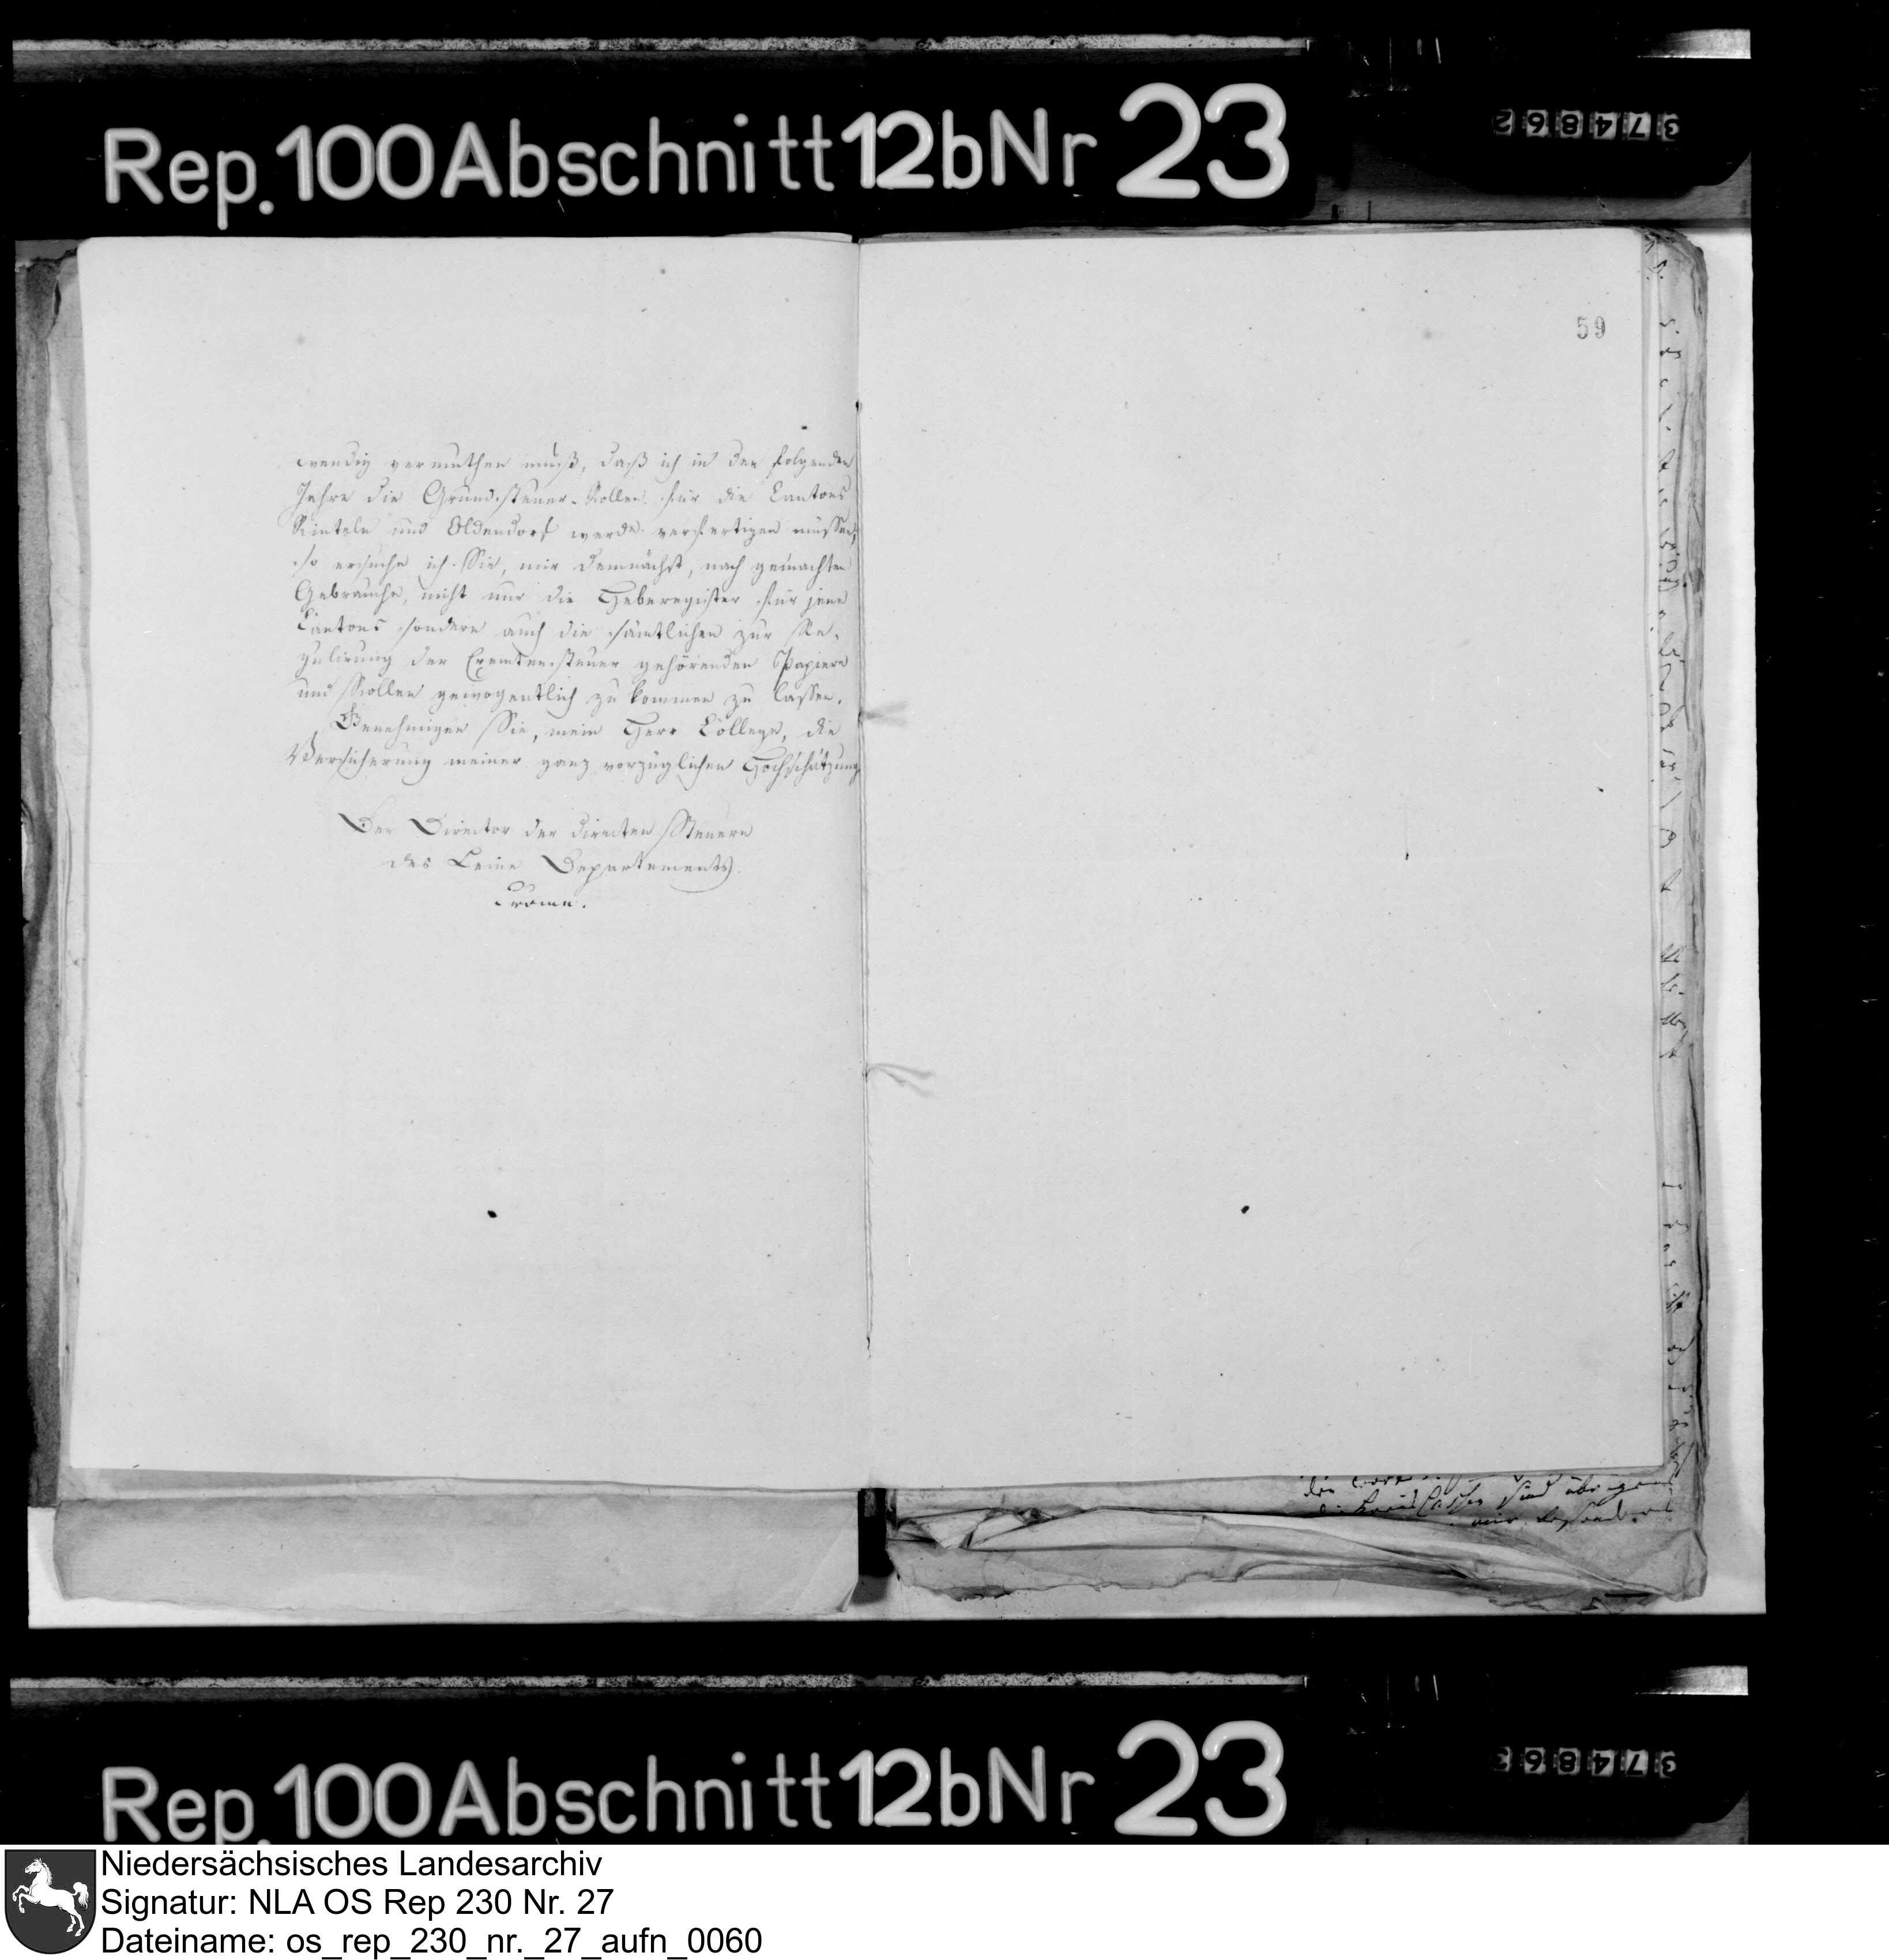 Rep. 100 Abschnitt 12b Nr 23
374862
59
wendig vermuthen muß, daß ich in den folgenden
Jahre die Grundsteuer-Rollen für die Cantons
Rinteln und Oldendorf werde verfertigen müssen,
so ersuche ich Sie, mir demnächst, nach gemachten
Gebrauche, nicht nur die Heberegister für jene
Cantons sondern auch die sämtlichen zur Re-
gulirung der Exemtensteuer gehörenden Papiere
und Rollen gewogentlich zu kommen zu lassen.
Genehmigen Sie, mein Herr College, die
Versicherung meiner ganz vorzüglichen Hochschätzung
Der Director der directen Steuern
des Leine Departements.
Crome.
sind übrigens
Rep. 100 Abschnitt 12b Nr 23
374863
Niedersächsisches Landesarchiv
Signatur: NLA OS Rep 230 Nr. 27
Dateiname: os_rep_230_nr._27_aufn_0060